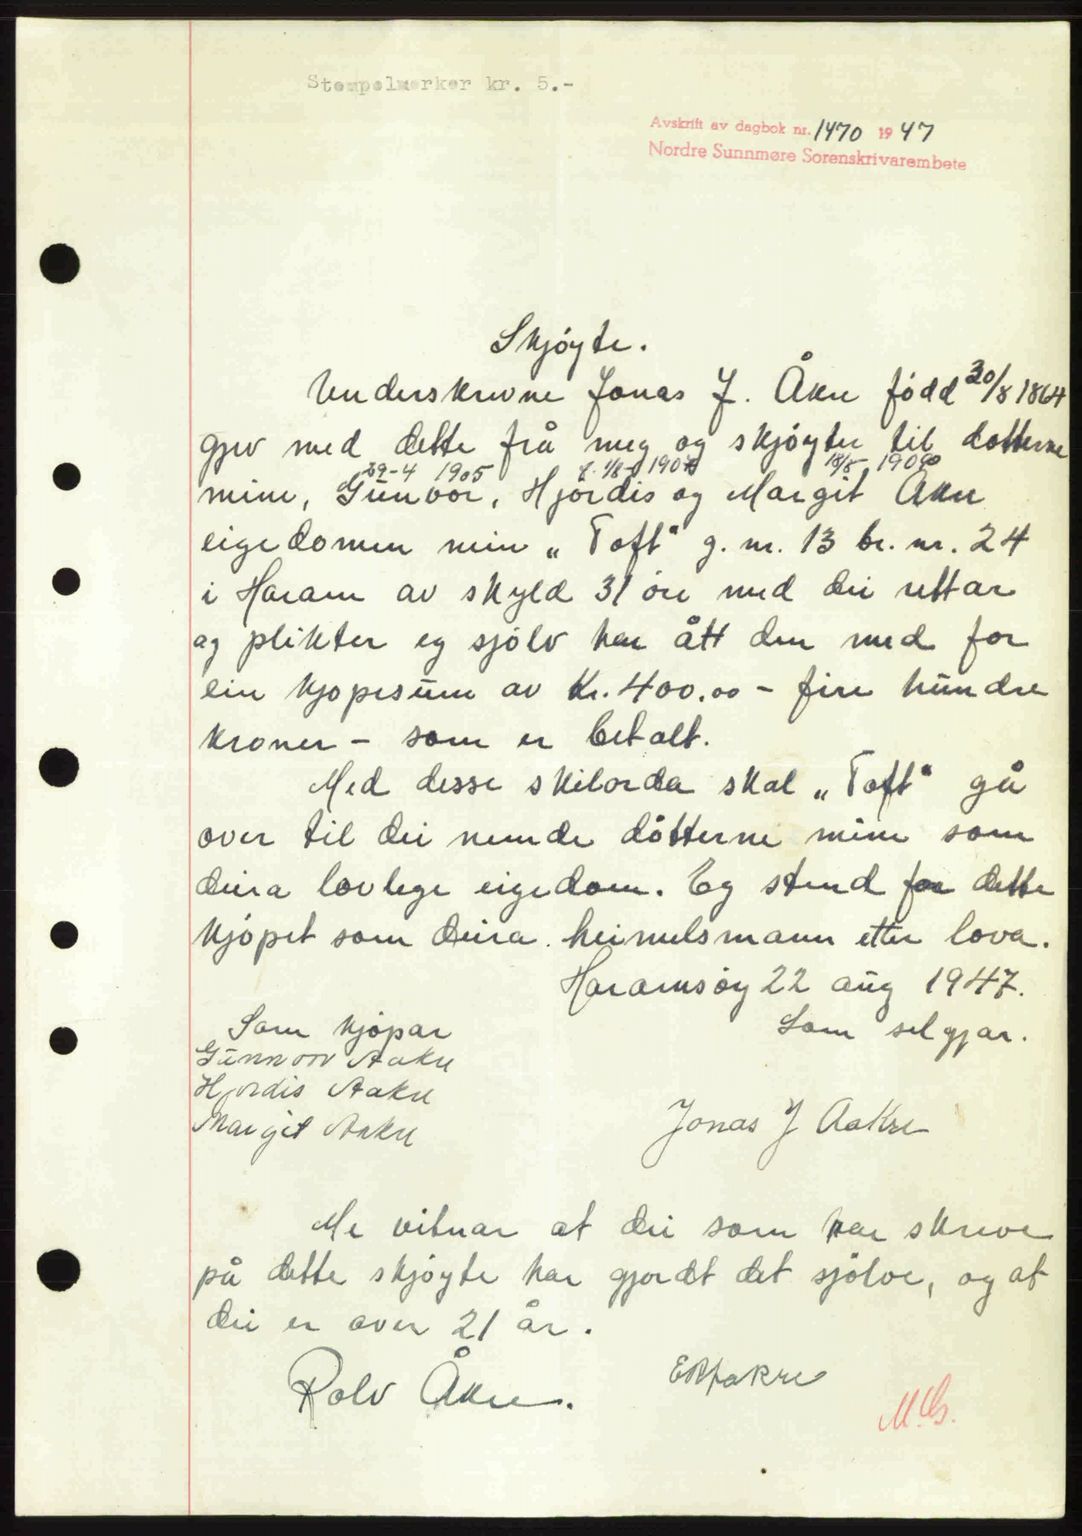 Stempelmerker kr. 5.-
Avskrift av dagbok nr. 1470 1947
Nordre Sunnmøre Sorenskrivarembete
Skjøyte.
Underskrivne Jonas J. Åkre fødd 30/8 1864
gjev med dette frå meg og skjøyter til døtterne
29-4 1905 1907 18/5 1909
mine, Gunvor, Hjørdis og Margit Åkre
eigedomen min „Toft“ g. nr. 13 br. nr. 24
i Haram av skyld 31 øre med dei rettar
og plikter eg sjølv har ått den med for
ein kjøpesum av kr. 400.00 - fire hundre
kroner - som er betalt.
Med desse skilorda skal „Toft“ gå
over til dei nemde døtterne mine som
deira lovlege eigedom. Eg stend for dette
kjøpet som deira heimelsmann etter lova.
Haramsøy 22 aug 1947.
Som kjøpar
Som seljgar.
Gunnvor Aakre
Hjørdis Aakre
Margit Aakre
Jonas J Aakre
Me vitnar at dei som har skrive
på dette skjøyte har gjordt det sjølve, og at
dei er over 21 år.
Rolv Åkre.